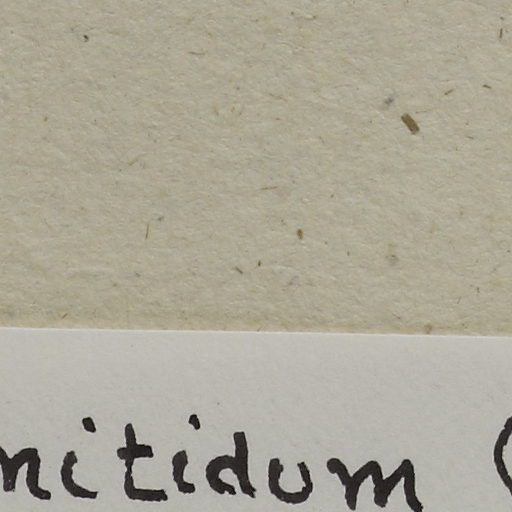 nitidum (